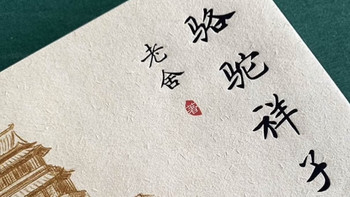 骆驼祥子
老舍